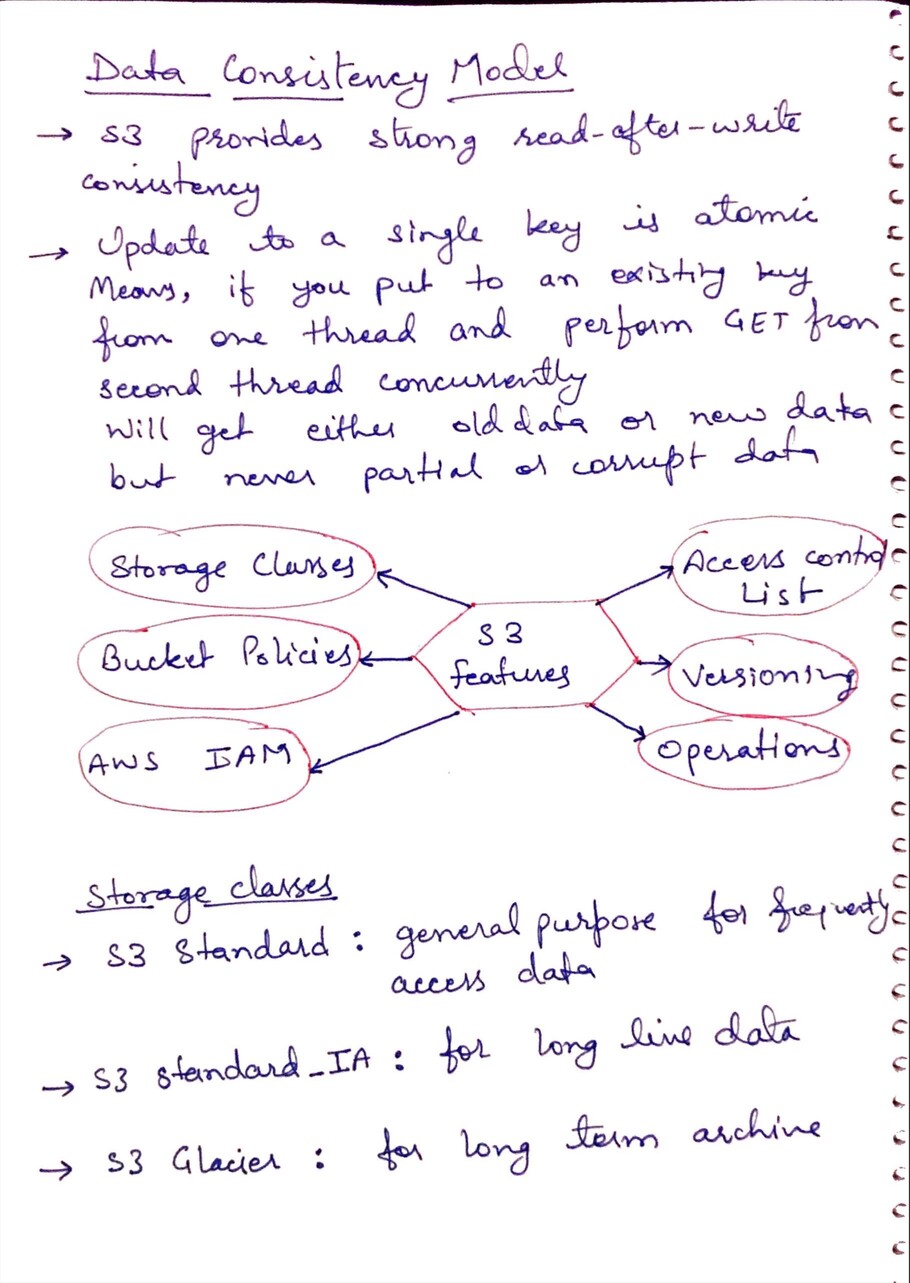 Data Consistency Model
→ S3 provides strong read-after-write
consistency
→ Update to a single key is atomic
Means, if you put to an existing key
from one thread and perform GET from
second thread concurrently
Will get either old data or new data
but never partial or corrupt data
Storage Classes
Access control
List
S3
features
Bucket Policies
Versioning
AWS IAM
Operations
Storage classes
→ S3 Standard : general purpose for frequently
access data
→ S3 standard_IA : for long live data
→ S3 Glacier : for long term archive